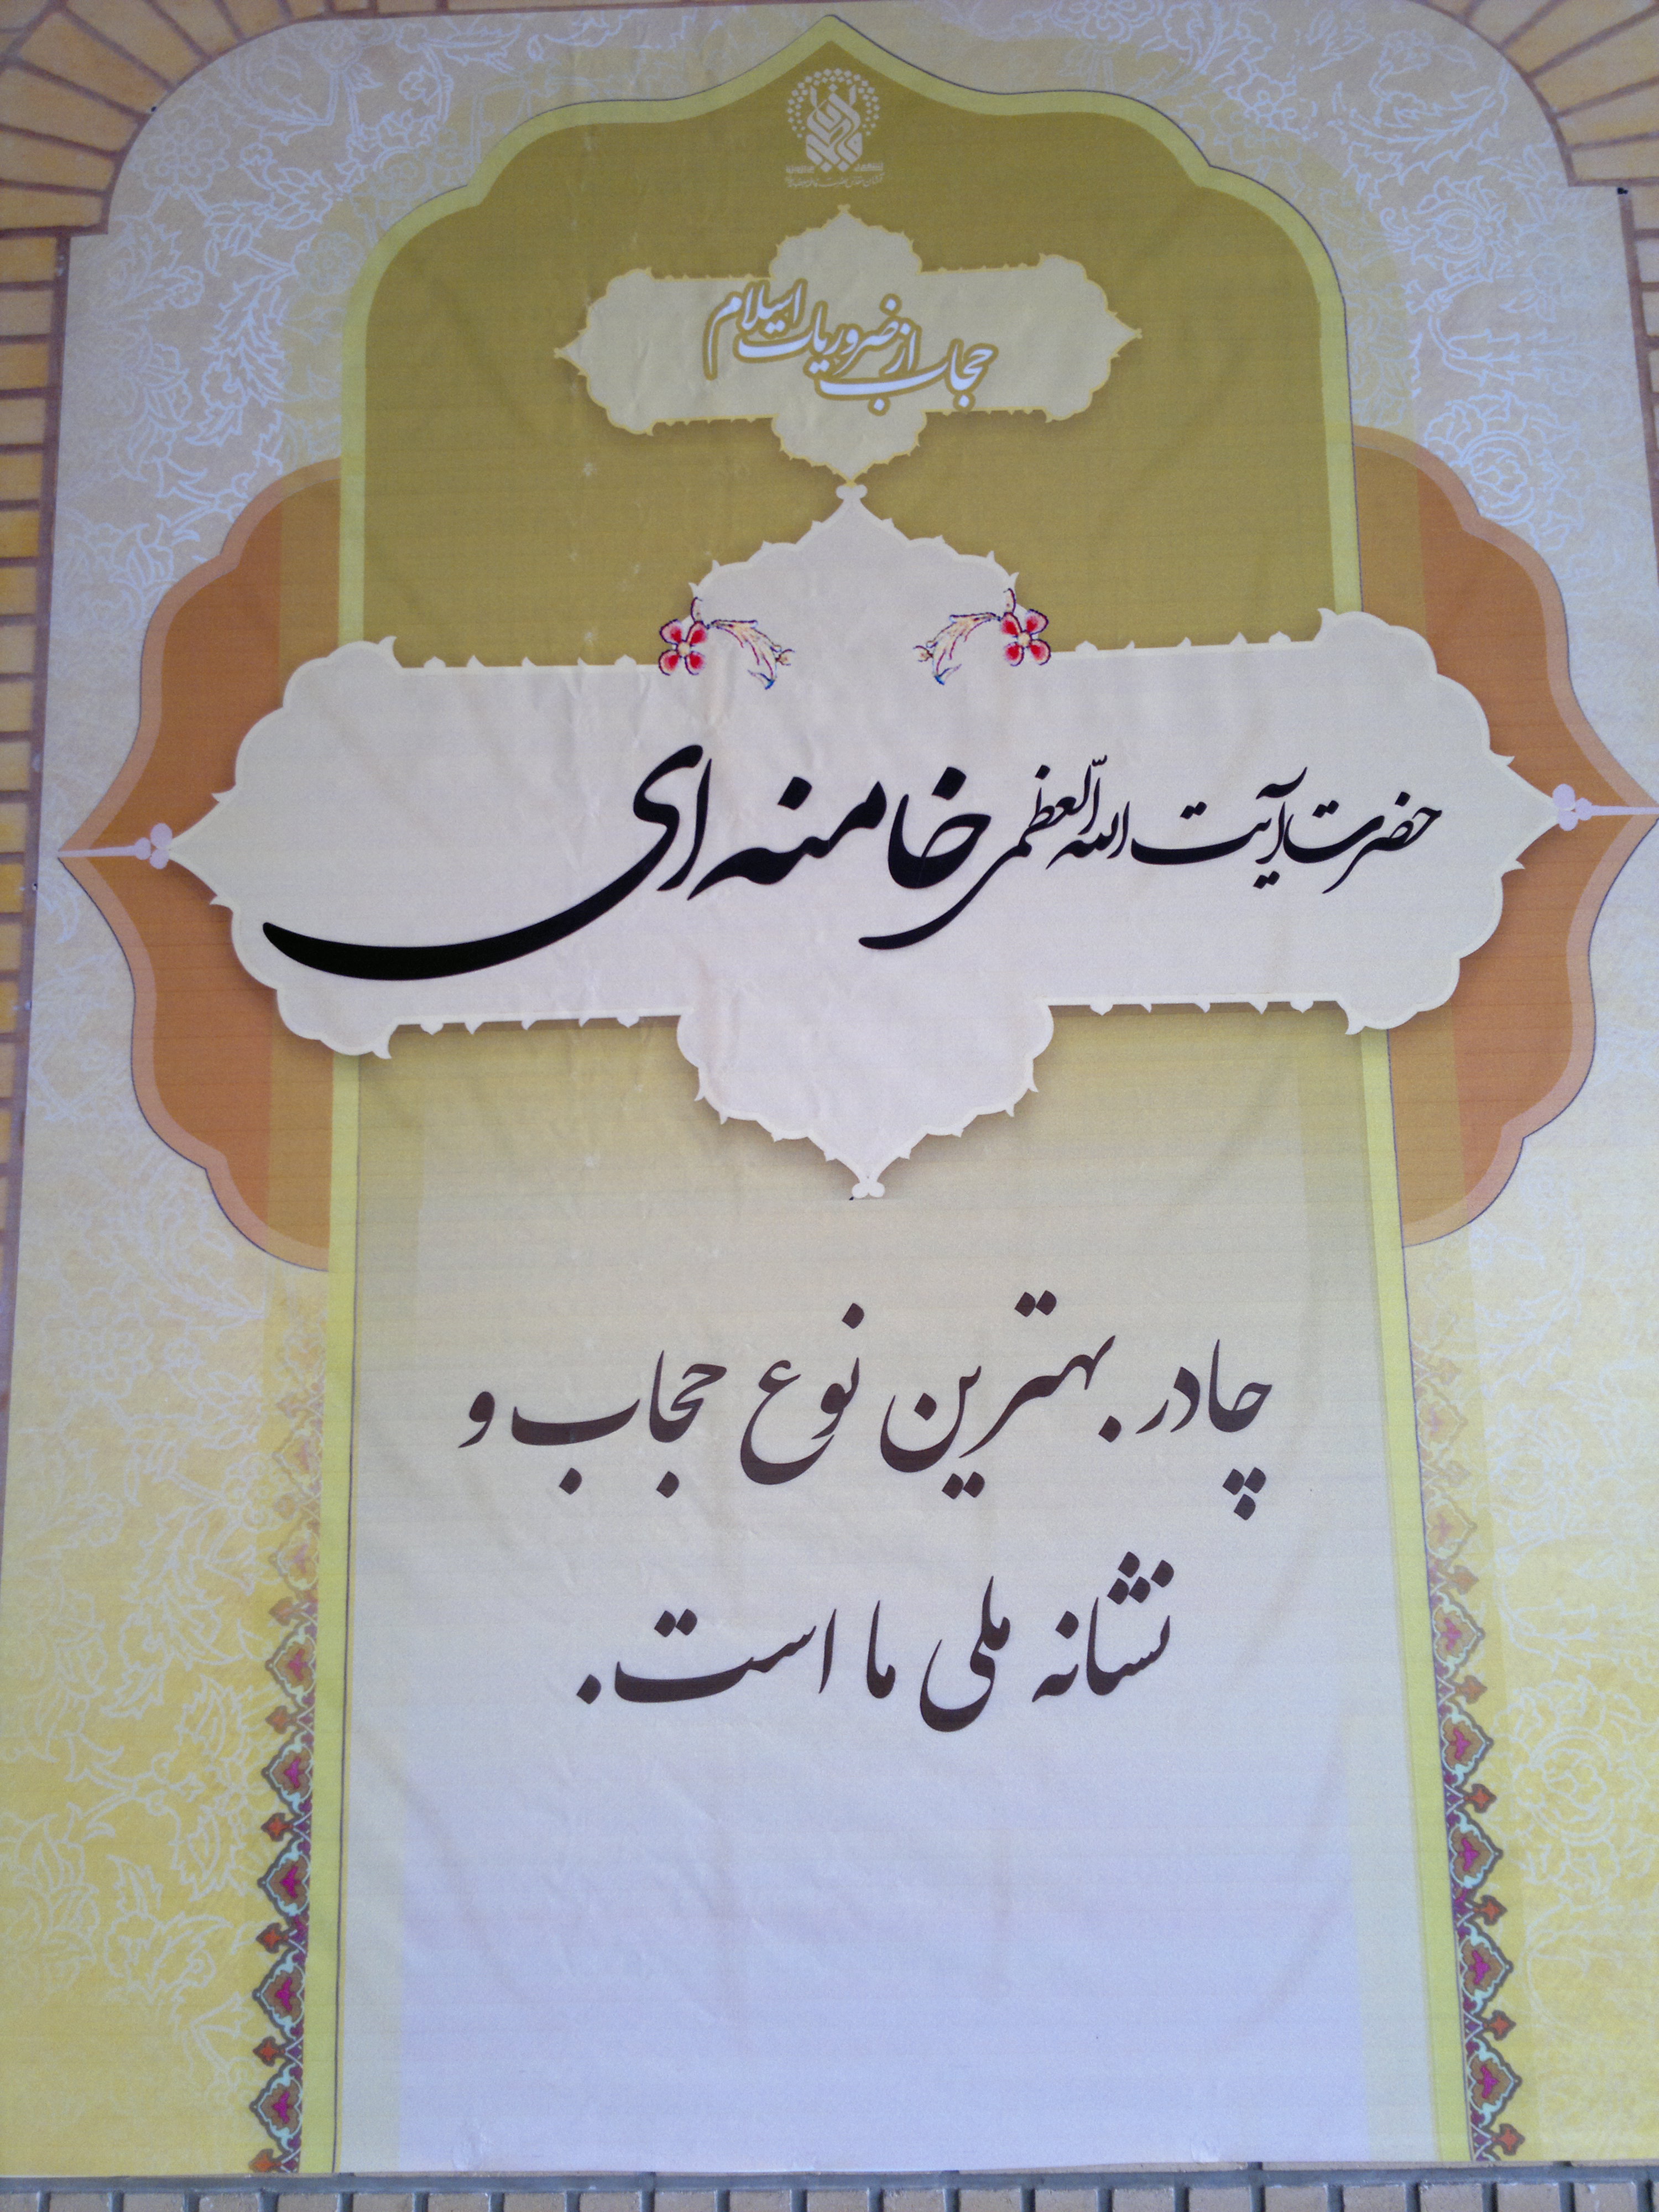 حجاب از ضروریات اسلام
حضرت آیت الله العظمی خامنه ای
چادر بهترین نوع حجاب و
نشانه ملی ما است.